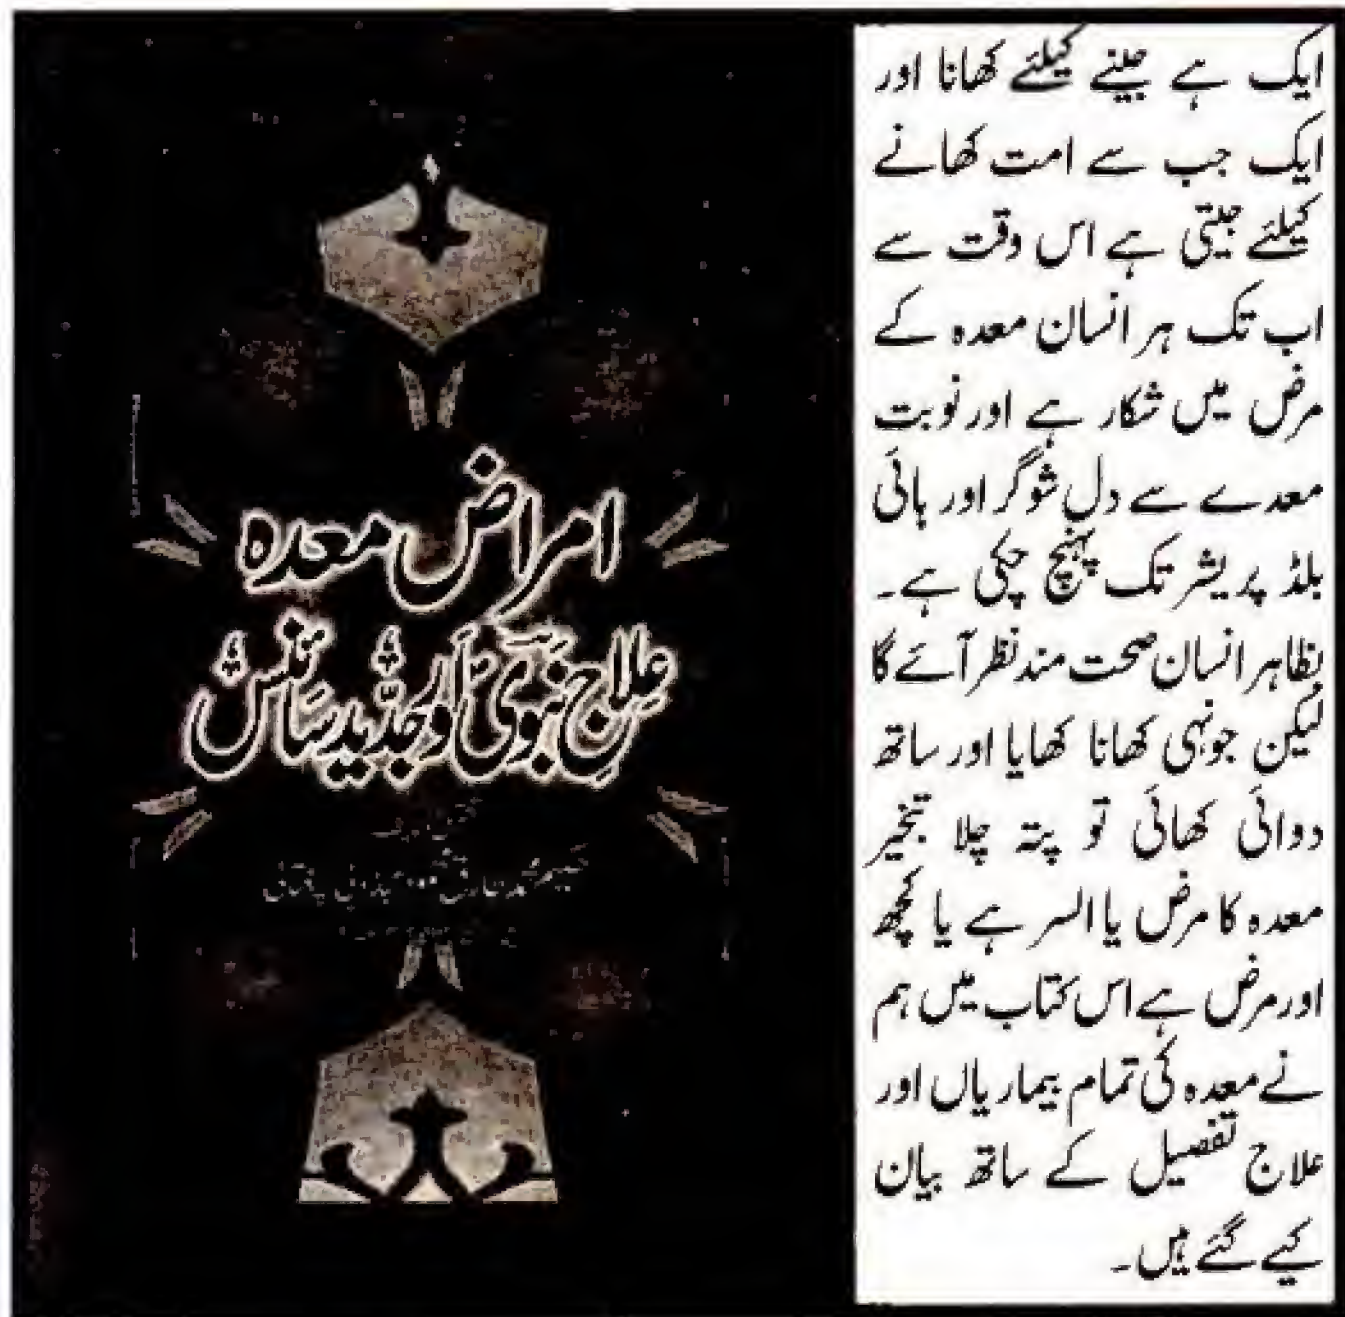 امراض معدہ
علاج نبوی اور جدید سائنس
ایک ہے جینے کیلئے کھانا اور
ایک جب سے امت کھانے
کیلئے جیتی ہے اس وقت سے
اب تک ہر انسان معدہ کے
مرض میں شکار ہے اور نوبت
معدے سے دل شوگر اور ہائی
بلڈ پریشر تک پہنچ چکی ہے۔
بظاہر انسان صحت مند نظر آئے گا
لیکن جونہی کھانا کھایا اور ساتھ
دوائی کھائی تو پتہ چلا تبخیر
معدہ کا مرض یا السر ہے یا کچھ
اور مرض ہے اس کتاب میں ہم
نے معدہ کی تمام بیماریاں اور
علاج تفصیل کے ساتھ بیان
کیے گئے ہیں۔